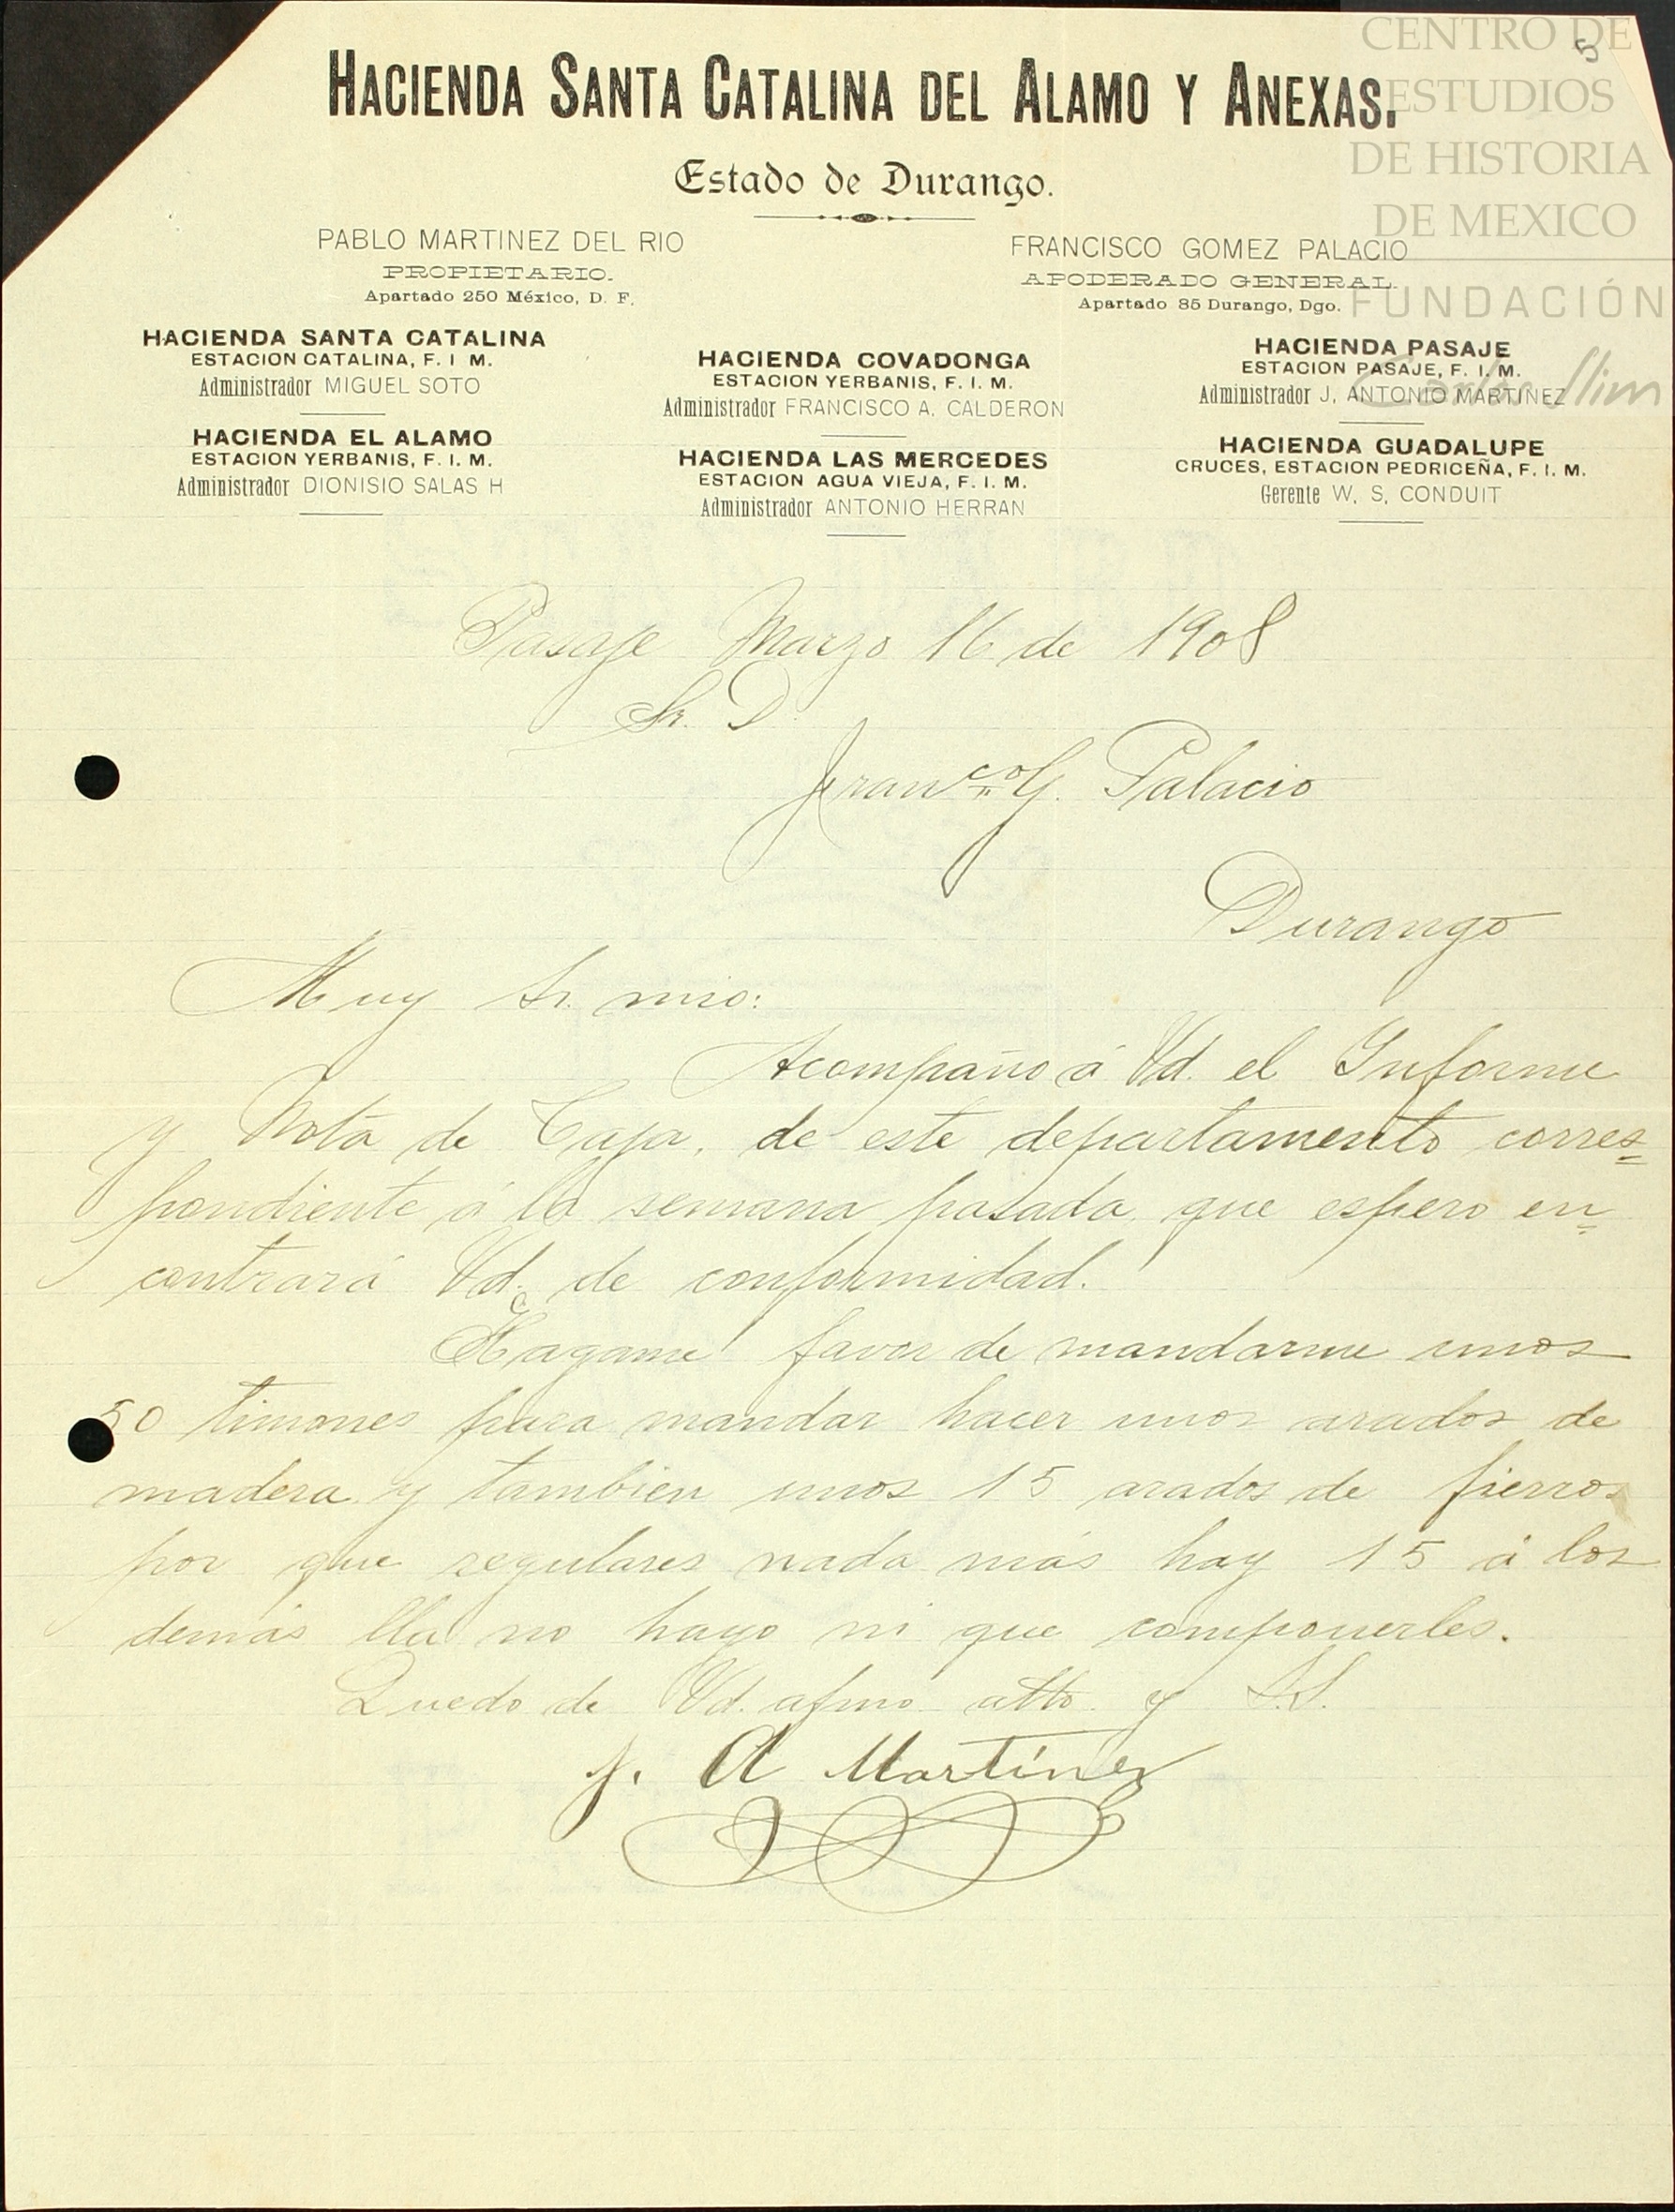 HACIENDA SANTA CATALINA DEL ALAMO Y ANEXAS.
Estado de Durango.
PABLO MARTINEZ DEL RIO
PROPIETARIO.
Apartado 250 México, D. F.
FRANCISCO GOMEZ PALACIO
APODERADO GENERAL.
Apartado 85 Durango, Dgo.
HACIENDA SANTA CATALINA
ESTACION CATALINA, F. I M.
Administrador MIGUEL SOTO
HACIENDA EL ALAMO
ESTACION YERBANIS, F. I. M.
Administrador DIONISIO SALAS H
HACIENDA COVADONGA
ESTACION YERBANIS, F. I. M.
Administrador FRANCISCO A. CALDERON
HACIENDA LAS MERCEDES
ESTACION AGUA VIEJA, F. I. M.
Administrador ANTONIO HERRAN
HACIENDA PASAJE
ESTACION PASAJE, F. I. M.
Administrador J. ANTONIO MARTINEZ
HACIENDA GUADALUPE
CRUCES, ESTACION PEDRICEÑA, F. I. M.
Gerente W. S. CONDUIT
5
CENTRO DE
ESTUDIOS
DE HISTORIA
DE MEXICO
FUNDACIÓN
Carlos Slim
Pasaje Marzo 16 de 1908
Sr. D.
Franco. G. Palacio
Durango
Muy Sr. mio:
Acompaño á Vd. el Informe
y Nota de Caja, de este departamento corres=
pondiente á la semana pasada, que espero en=
contrará Vd. de conformidad.
Hagame favor de mandarme unos
50 timones para mandar hacer unos arados de
madera y tambien unos 15 arados de fierro.
por que regulares nada más hay 15 á los
demás lla no hayo ni que componerles.
Quedo de Vd. afmo atto. y S.S.
J. A Martínez